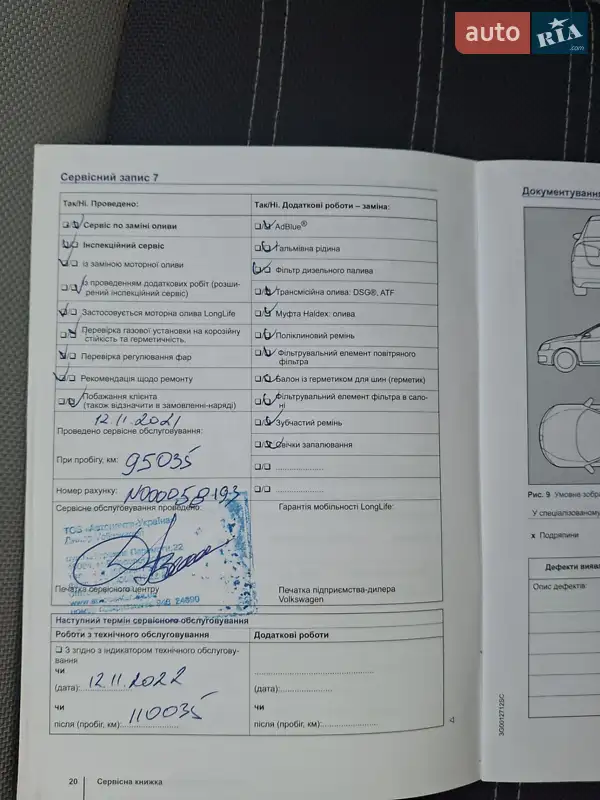 auto RIA .com
Сервісний запис 7
Так/Ні. Проведено:
Так/Ні. Додаткові роботи – заміна:
Сервіс по заміні оливи
AdBlue®
Інспекційний сервіс
Гальмівна рідина
із заміною моторної оливи
Фільтр дизельного палива
із проведенням додаткових робіт (розши-
рений інспекційний сервіс)
Трансмісійна олива: DSG®, ATF
Застосовується моторна олива LongLife
Муфта Haldex: олива
Перевірка газової установки на корозійну
стійкість та герметичність.
Поліклиновий ремінь
Перевірка регулювання фар
Фільтрувальний елемент повітряного
фільтра
Рекомендація щодо ремонту
Балон із герметиком для шин (герметик)
Побажання клієнта
(також відзначити в замовленні-наряді)
Фільтрувальний елемент фільтра в сало-
ні
12.11.2021
Зубчастий ремінь
Проведено сервісне обслуговування:
Свічки запалювання
При пробігу, км: 95035
Номер рахунку: N000058193
Сервісне обслуговування проведено:
Гарантія мобільності LongLife:
ТОВ «Автоцентр-Україна»
Печатка сервісного центру
Печатка підприємства-дилера
Volkswagen
Наступний термін сервісного обслуговування
Роботи з технічного обслуговування
Додаткові роботи
З згідно з індикатором технічного обслугову-
вання
чи
(дата): 12.11.2022
(дата):
чи
чи
після (пробіг, км): 110035
після (пробіг, км):
20 Сервісна книжка
3G0012712SC
Документування
Рис. 9 Умовне зобра
У спеціалізованому
x Подряпини
Дефекти вияв
Опис дефектів: